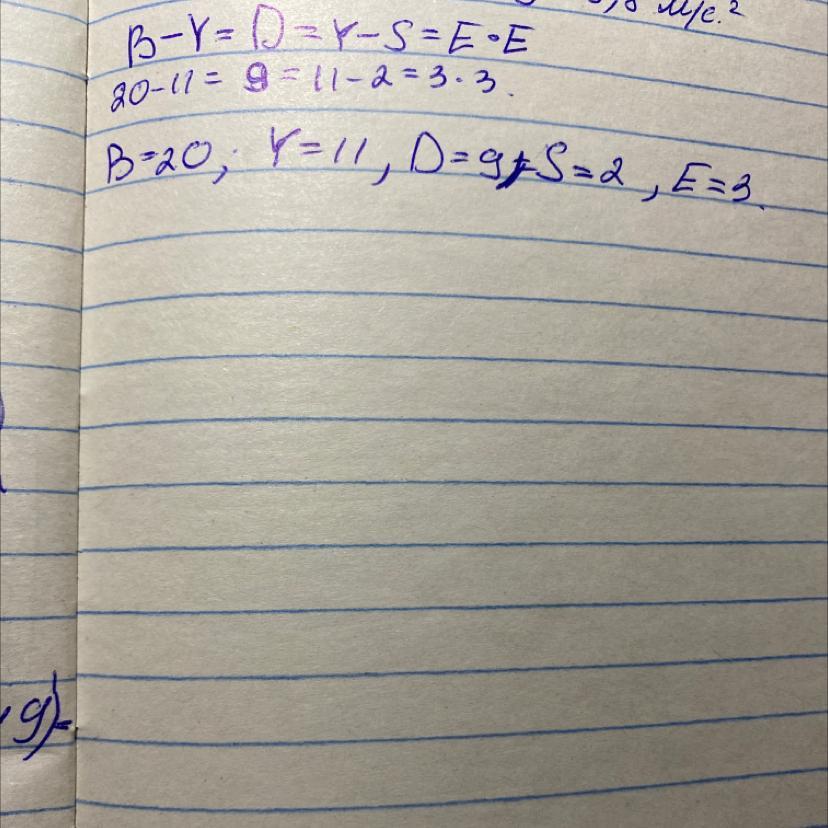 м/с.²
B-Y=D=Y-S=E·E
20-11=9=11-2=3·3.
B=20; Y=11, D=9, S=2, E=3.
9)-